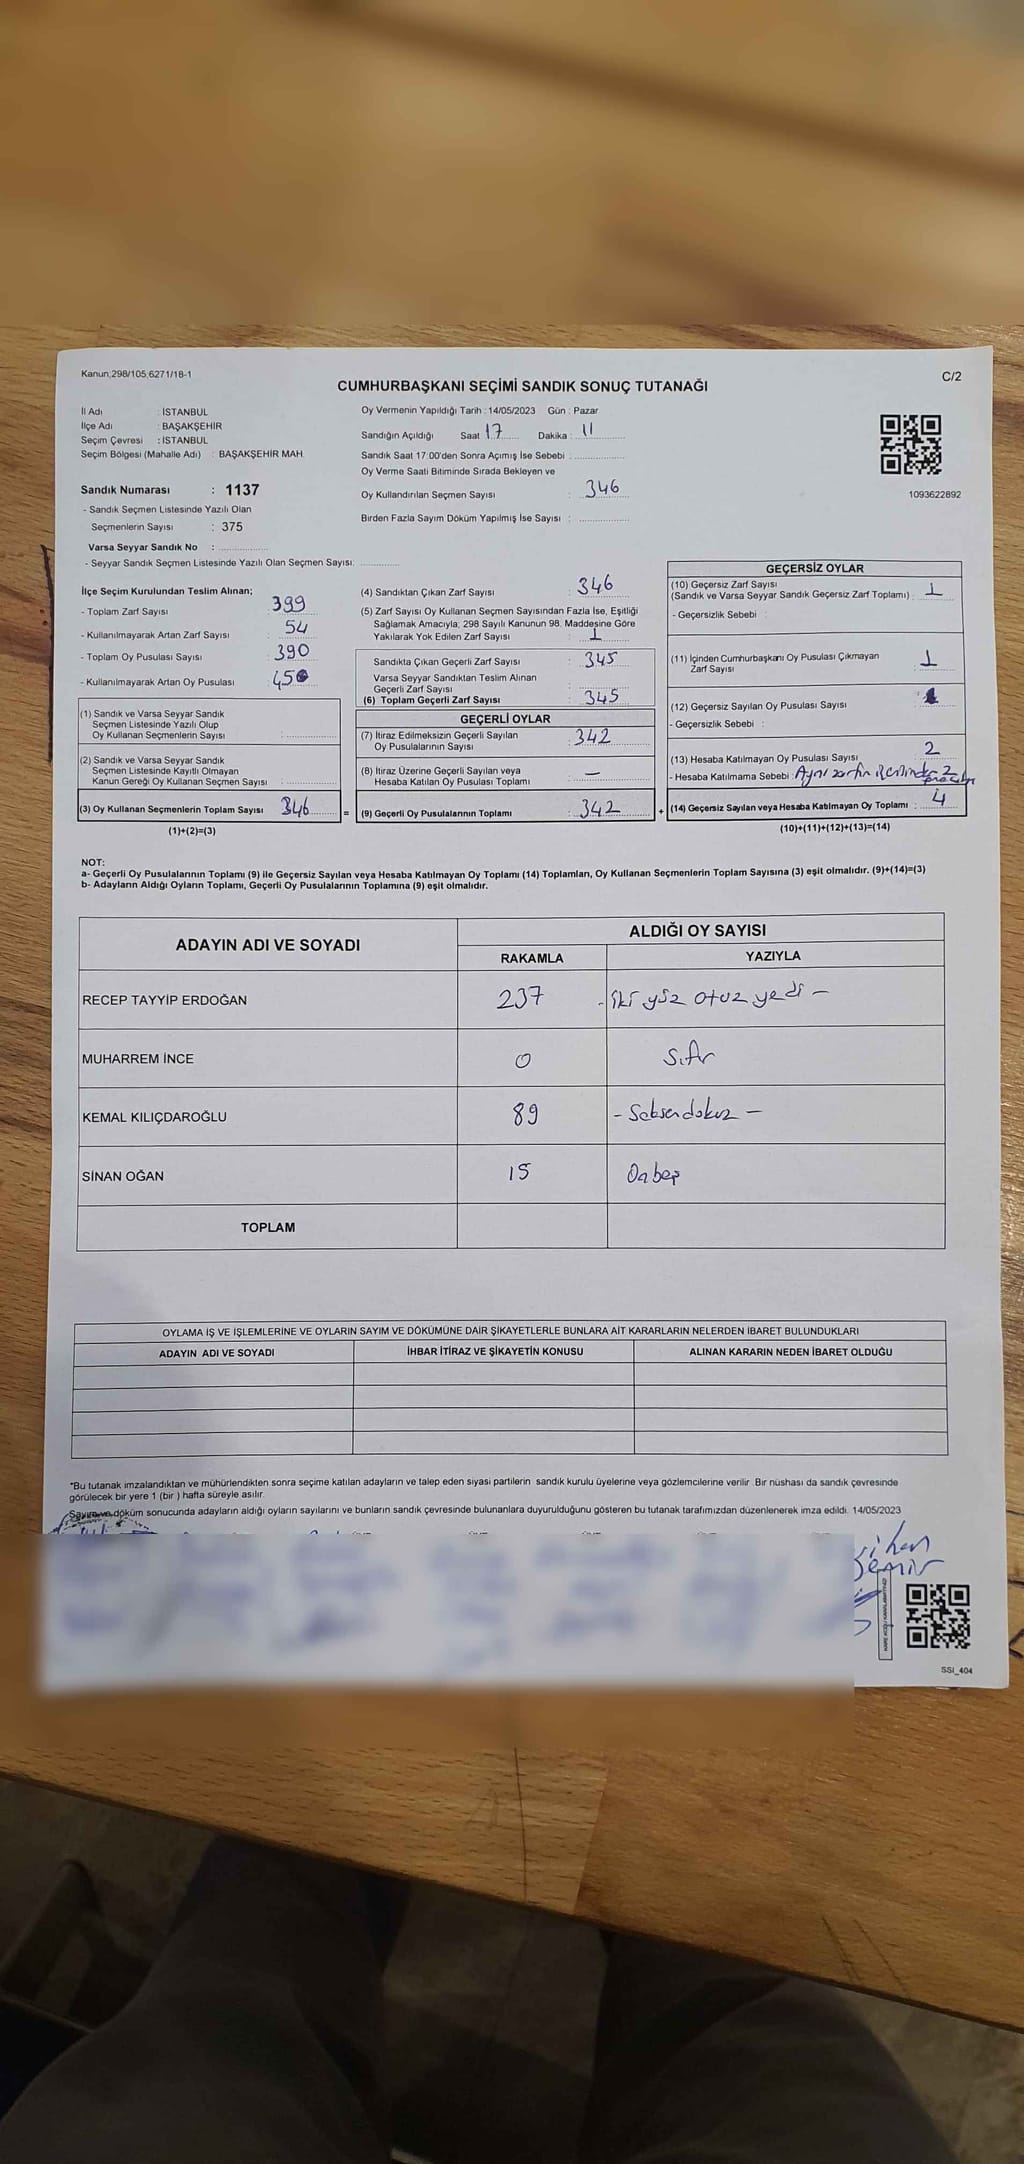 Kanun;298/105;6271/18-1
C/2
CUMHURBAŞKANI SEÇİMİ SANDIK SONUÇ TUTANAĞI
İl Adı : İSTANBUL
İlçe Adı : BAŞAKŞEHİR
Seçim Çevresi : İSTANBUL
Seçim Bölgesi (Mahalle Adı) : BAŞAKŞEHİR MAH.
Sandık Numarası : 1137
- Sandık Seçmen Listesinde Yazılı Olan
Seçmenlerin Sayısı : 375
Varsa Seyyar Sandık No :
- Seyyar Sandık Seçmen Listesinde Yazılı Olan Seçmen Sayısı:
Oy Vermenin Yapıldığı Tarih : 14/05/2023 Gün : Pazar
Sandığın Açıldığı Saat 17 Dakika : 11
Sandık Saat 17:00'den Sonra Açımış İse Sebebi :
Oy Verme Saati Bitiminde Sırada Bekleyen ve
Oy Kullandırılan Seçmen Sayısı : 346
Birden Fazla Sayım Döküm Yapılmış İse Sayısı :
1093622892
İlçe Seçim Kurulundan Teslim Alınan;
- Toplam Zarf Sayısı : 399
- Kullanılmayarak Artan Zarf Sayısı : 54
- Toplam Oy Pusulası Sayısı : 390
- Kullanılmayarak Artan Oy Pusulası : 45
(1) Sandık ve Varsa Seyyar Sandık
Seçmen Listesinde Yazılı Olup
Oy Kullanan Seçmenlerin Sayısı :
(2) Sandık ve Varsa Seyyar Sandık
Seçmen Listesinde Kayıtlı Olmayan
Kanun Gereği Oy Kullanan Seçmen Sayısı :
(3) Oy Kullanan Seçmenlerin Toplam Sayısı : 346 =
(1)+(2)=(3)
(4) Sandıktan Çıkan Zarf Sayısı : 346
(5) Zarf Sayısı Oy Kullanan Seçmen Sayısından Fazla İse, Eşitliği
Sağlamak Amacıyla; 298 Sayılı Kanunun 98. Maddesine Göre
Yakılarak Yok Edilen Zarf Sayısı : 1
Sandıkta Çıkan Geçerli Zarf Sayısı : 345
Varsa Seyyar Sandıktan Teslim Alınan
Geçerli Zarf Sayısı :
(6) Toplam Geçerli Zarf Sayısı : 345
GEÇERLİ OYLAR
(7) İtiraz Edilmeksizin Geçerli Sayılan
Oy Pusulalarının Sayısı : 342
(8) İtiraz Üzerine Geçerli Sayılan veya
Hesaba Katılan Oy Pusulası Toplamı : —
(9) Geçerli Oy Pusulalarının Toplamı : 342 +
GEÇERSİZ OYLAR
(10) Geçersiz Zarf Sayısı
(Sandık ve Varsa Seyyar Sandık Geçersiz Zarf Toplamı) : 1
- Geçersizlik Sebebi :
(11) İçinden Cumhurbaşkanı Oy Pusulası Çıkmayan
Zarf Sayısı : 1
(12) Geçersiz Sayılan Oy Pusulası Sayısı :
- Geçersizlik Sebebi :
(13) Hesaba Katılmayan Oy Pusulası Sayısı : 2
- Hesaba Katılmama Sebebi : Aynı zarfın içerisinde 2
(14) Geçersiz Sayılan veya Hesaba Katılmayan Oy Toplamı : 4
(10)+(11)+(12)+(13)=(14)
NOT:
a- Geçerli Oy Pusulalarının Toplamı (9) ile Geçersiz Sayılan veya Hesaba Katılmayan Oy Toplamı (14) Toplamları, Oy Kullanan Seçmenlerin Toplam Sayısına (3) eşit olmalıdır. (9)+(14)=(3)
b- Adayların Aldığı Oyların Toplamı, Geçerli Oy Pusulalarının Toplamına (9) eşit olmalıdır.
ADAYIN ADI VE SOYADI
ALDIĞI OY SAYISI
RAKAMLA YAZIYLA
RECEP TAYYİP ERDOĞAN 237 - iki yüz otuz yedi -
MUHARREM İNCE 0 Sıfır
KEMAL KILIÇDAROĞLU 89 - Seksendokuz -
SİNAN OĞAN 15 Onbeş
TOPLAM
OYLAMA İŞ VE İŞLEMLERİNE VE OYLARIN SAYIM VE DÖKÜMÜNE DAİR ŞİKAYETLERLE BUNLARA AİT KARARLARIN NELERDEN İBARET BULUNDUKLARI
ADAYIN ADI VE SOYADI İHBAR İTİRAZ VE ŞİKAYETİN KONUSU ALINAN KARARIN NEDEN İBARET OLDUĞU
*Bu tutanak imzalandıktan ve mühürlendikten sonra seçime katılan adayların ve talep eden siyasi partilerin sandık kurulu üyelerine veya gözlemcilerine verilir. Bir nüshası da sandık çevresinde
görülecek bir yere 1 (bir ) hafta süreyle asılır.
Sayım ve döküm sonucunda adayların aldığı oyların sayılarını ve bunların sandık çevresinde bulunanlara duyurulduğunu gösteren bu tutanak tarafımızdan düzenlenerek imza edildi. 14/05/2023
SSI_404